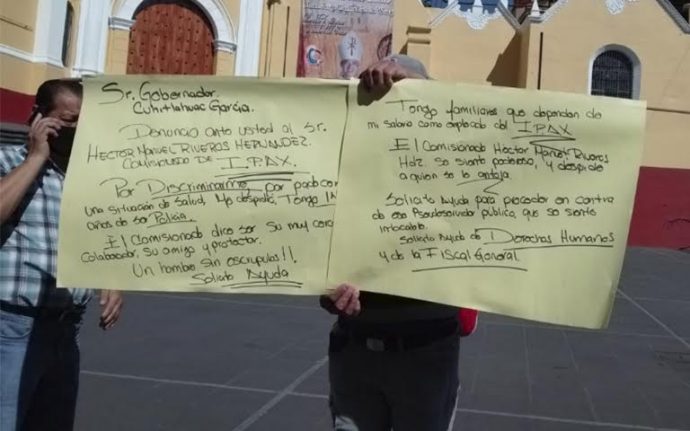 Sr. Gobernador
Cuhitlahuac García.
Denuncio ante usted al Sr.
HECTOR MANUEL RIVEROS HERNANDEZ.
COMISIONADO DE I.PAX.
Por Discriminarme, por padecer
una situación de salud, Me despidió, Tengo
años de ser Policía.
El Comisionado dice ser Su muy cerc
Colaborador, Su amigo y protector.
Un hombre sin escrupulos!!
Solicito Ayuda
Tengo familiares que dependan de
mi salario como empleado del I.PAX
El Comisionado Hector Manuel Riveros
Hdz. se siente poderoso, y despide
a quien se le antoja.
Solicito Ayuda para proceder en contra
de ese Pseudoservidor publico, que se siente
intocable.
Solicito Ayuda de Derechos Humanos
y de la Fiscal General